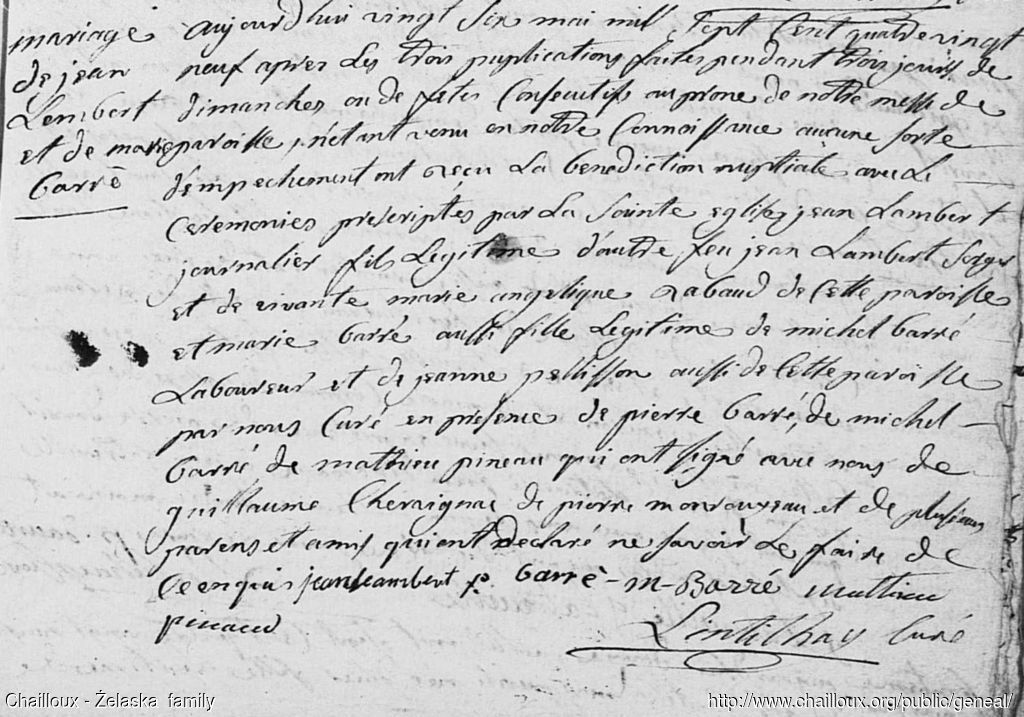 mariage
de jean
Lembert
et de marie
barré
aujourdhui vingt six mai mill sept cent quatre vingt
neuf apres les trois puplications faites pendant trois jours de
dimanches ou de fetes consecutifs au prone de notre messe de
paroisse, n'etant venu en notre connoissance aucune sorte
d'empechement ont reçu la benediction nuptiale avec le
ceremonies prescriptes par la sainte eglise, jean Lambert
journalier fils legitime d'autre feu jean Lambert
et de vivante marie angelique Labaud de cette paroisse
et marie barré aussi fille legitime de michel barré
Laboureur et de jeanne pellisson aussi de cette paroisse
par nous curé en presence de pierre barré, de michel
barré de mathieu pineau qui ont signé avec nous de
guillaume de pierre et de plusieurs
parens et amis qui ont declaré ne savoir le faire de
ce enquis jean Lambert p. barré - m - Barré mathieu
pineaud
Lintilhay curé
Chailloux - Żelaska family
http://www.chailloux.org/public/geneal/